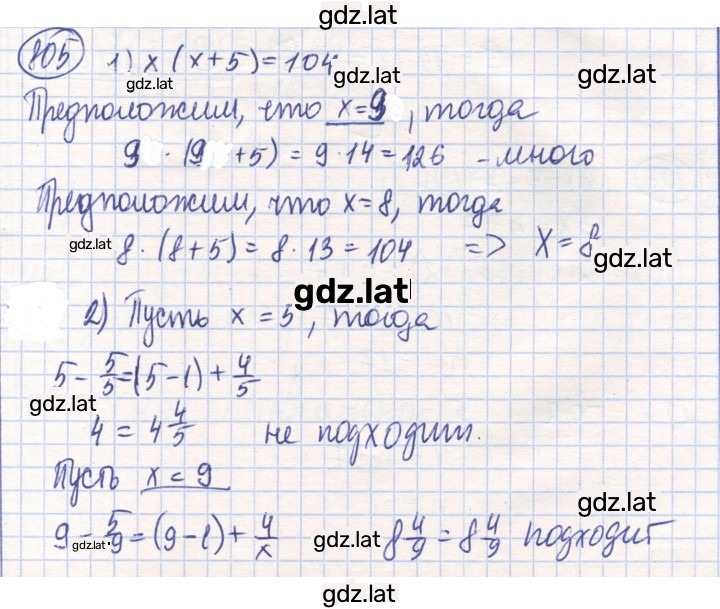 gdz.lat
805 1) x (x+5) = 104
gdz.lat
gdz.lat
Предположим, что x=9, тогда
9 · (9 +5) = 9·14=126 -много
Предположим, что x=8, тогда
gdz.lat 8·(8+5) = 8·13 = 104 => X=8
gdz.lat
gdz.lat
2) Пусть x = 5, тогда
5 - 5/5 = (5-1) + 4/5
gdz.lat
4 = 4 4/5 не подходит.
Пусть x = 9
gdz.lat
9 - 5/9 = (9-1) + 4/x 8 4/9 = 8 4/9 подходит
gdz.lat gdz.lat
gdz.lat